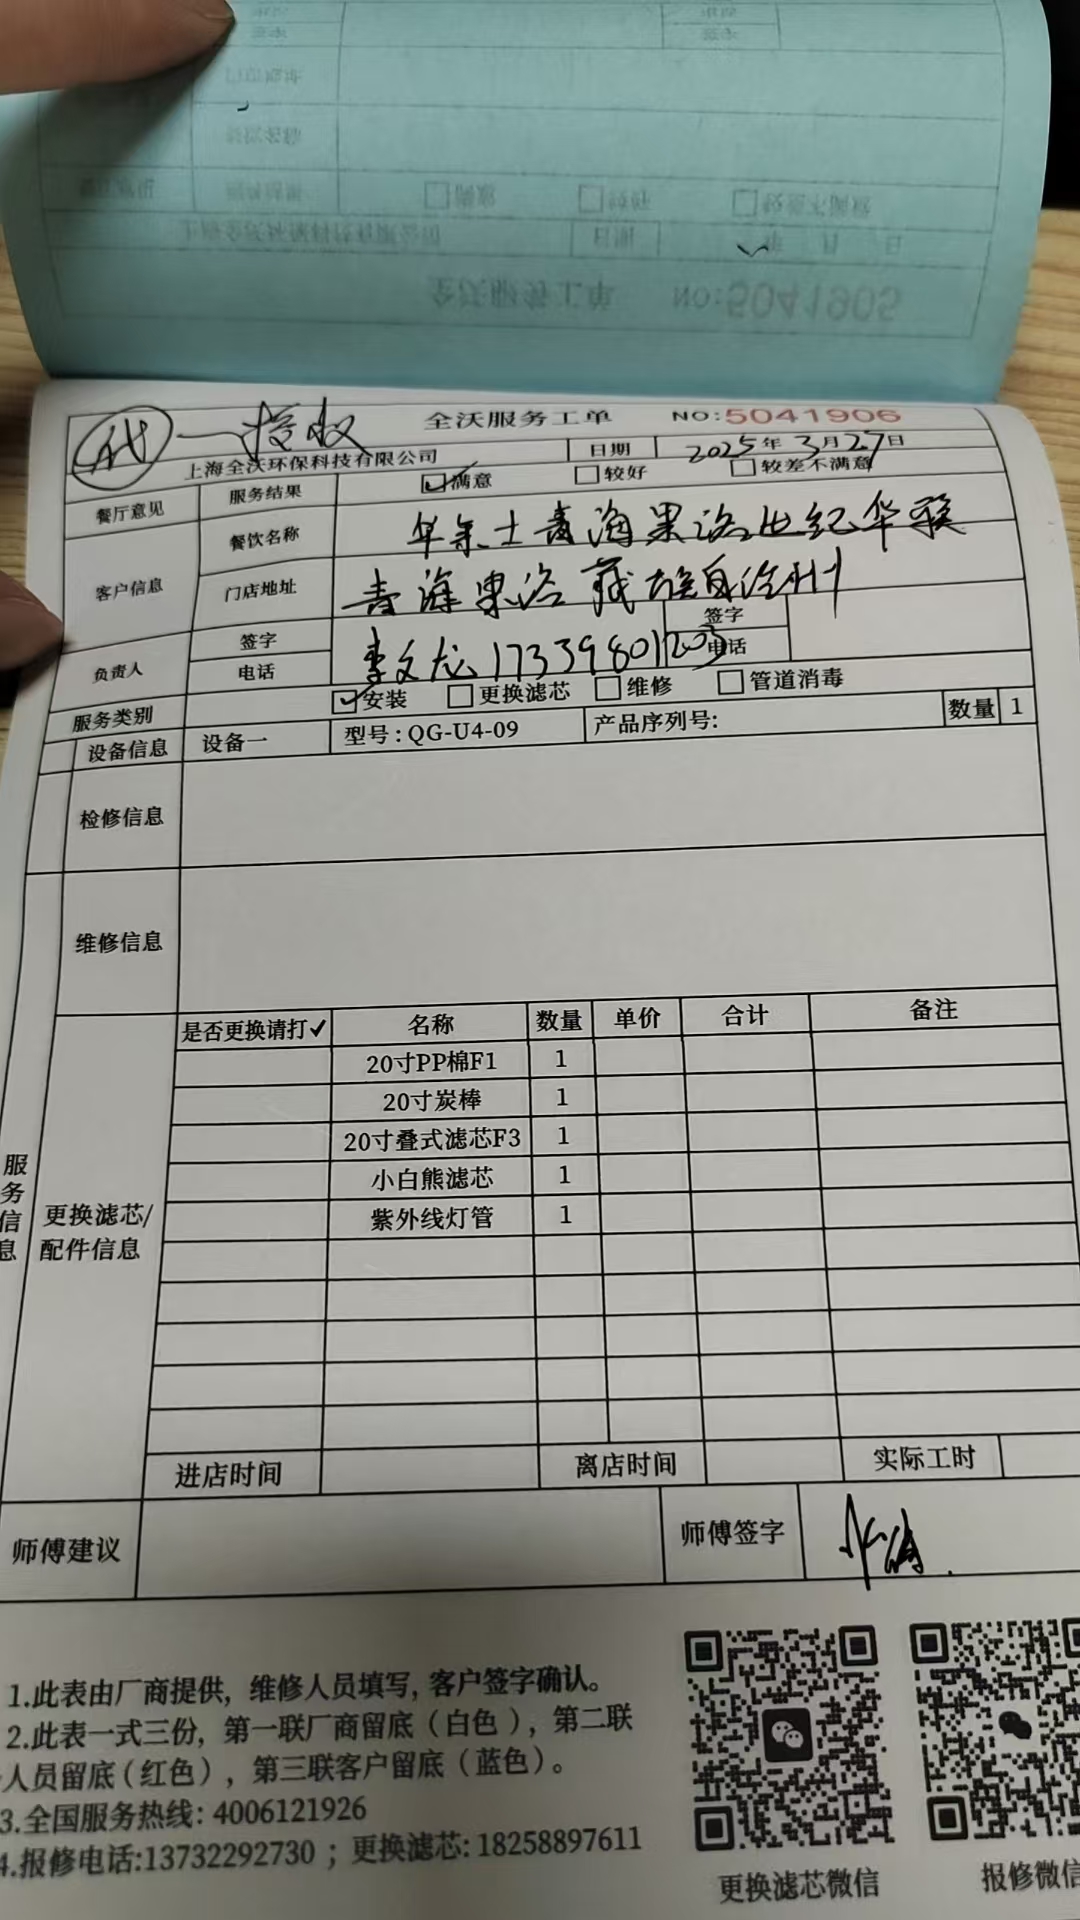 全沃服务工单 NO:5041905
代 一 授权
全沃服务工单 NO:5041906
上海全沃环保科技有限公司 日期 2025年3月27日
餐厅意见 服务结果 ☑满意 □较好 □较差不满意
客户信息 餐饮名称 华莱士青海果洛世纪华联
门店地址 青海果洛藏族自治州
负责人 签字 李文龙 签字
电话 17339801203 电话
服务类别 ☑安装 □更换滤芯 □维修 □管道消毒
设备信息 设备一 型号:QG-U4-09 产品序列号: 数量 1
检修信息
维修信息
服务信息
更换滤芯/配件信息
是否更换请打✓ 名称 数量 单价 合计 备注
20寸PP棉F1 1
20寸炭棒 1
20寸叠式滤芯F3 1
小白熊滤芯 1
紫外线灯管 1
进店时间 离店时间 实际工时
师傅建议 师傅签字
1.此表由厂商提供, 维修人员填写, 客户签字确认。
2.此表一式三份, 第一联厂商留底（白色）, 第二联
人员留底（红色）, 第三联客户留底（蓝色）。
3.全国服务热线: 4006121926
4.报修电话:13732292730 ; 更换滤芯: 18258897611
更换滤芯微信 报修微信